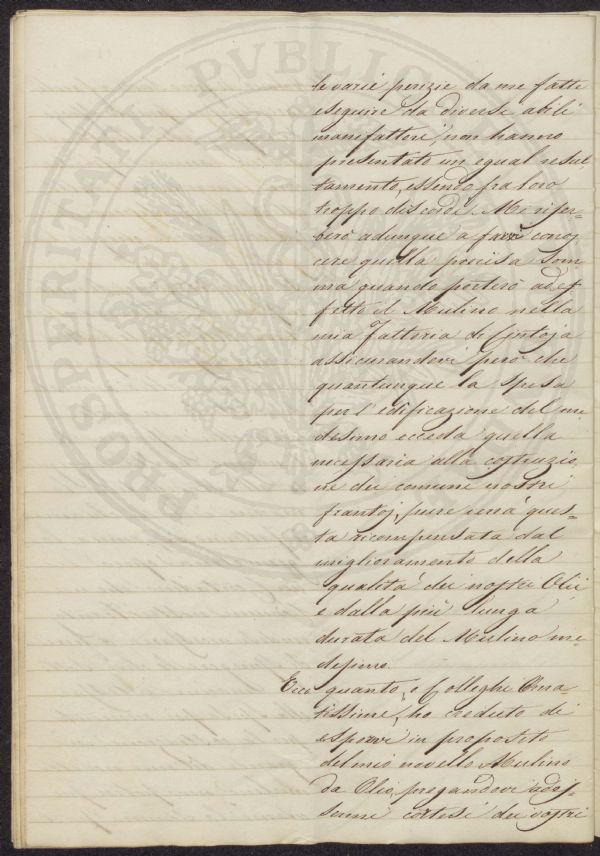 le varie perizie da me fatte
eseguire da diverse abili
manifattori, non hanno
presentato un egual resul-
tamento, essendo fra loro
troppo discordi. Mi riser-
berò adunque a farvi conos
cere quella precisa Som
ma quando porterò ad ef
fetto il Mulino nella
mia Fattoria di Cintoja
assicurandovi però che
quantunque la Spesa
per l'edificazione del me
desimo ecceda quella
necessaria alla costruzio
ne dei comuni nostri
frantoj, pure verrà ques=
ta ricompensata dal
miglioramento della
qualità dei nostri Olii
e dalla più lunga
durata del Mulino me
desimo.
Ecco quanto, o Colleghi Orna=
tissimi, ho creduto di
esporvi in proposito
del mio novello Mulino
da Olio, pregandovi ad es=
sermi cortesi dei vostri
PROSPERITATI PVBLICAE